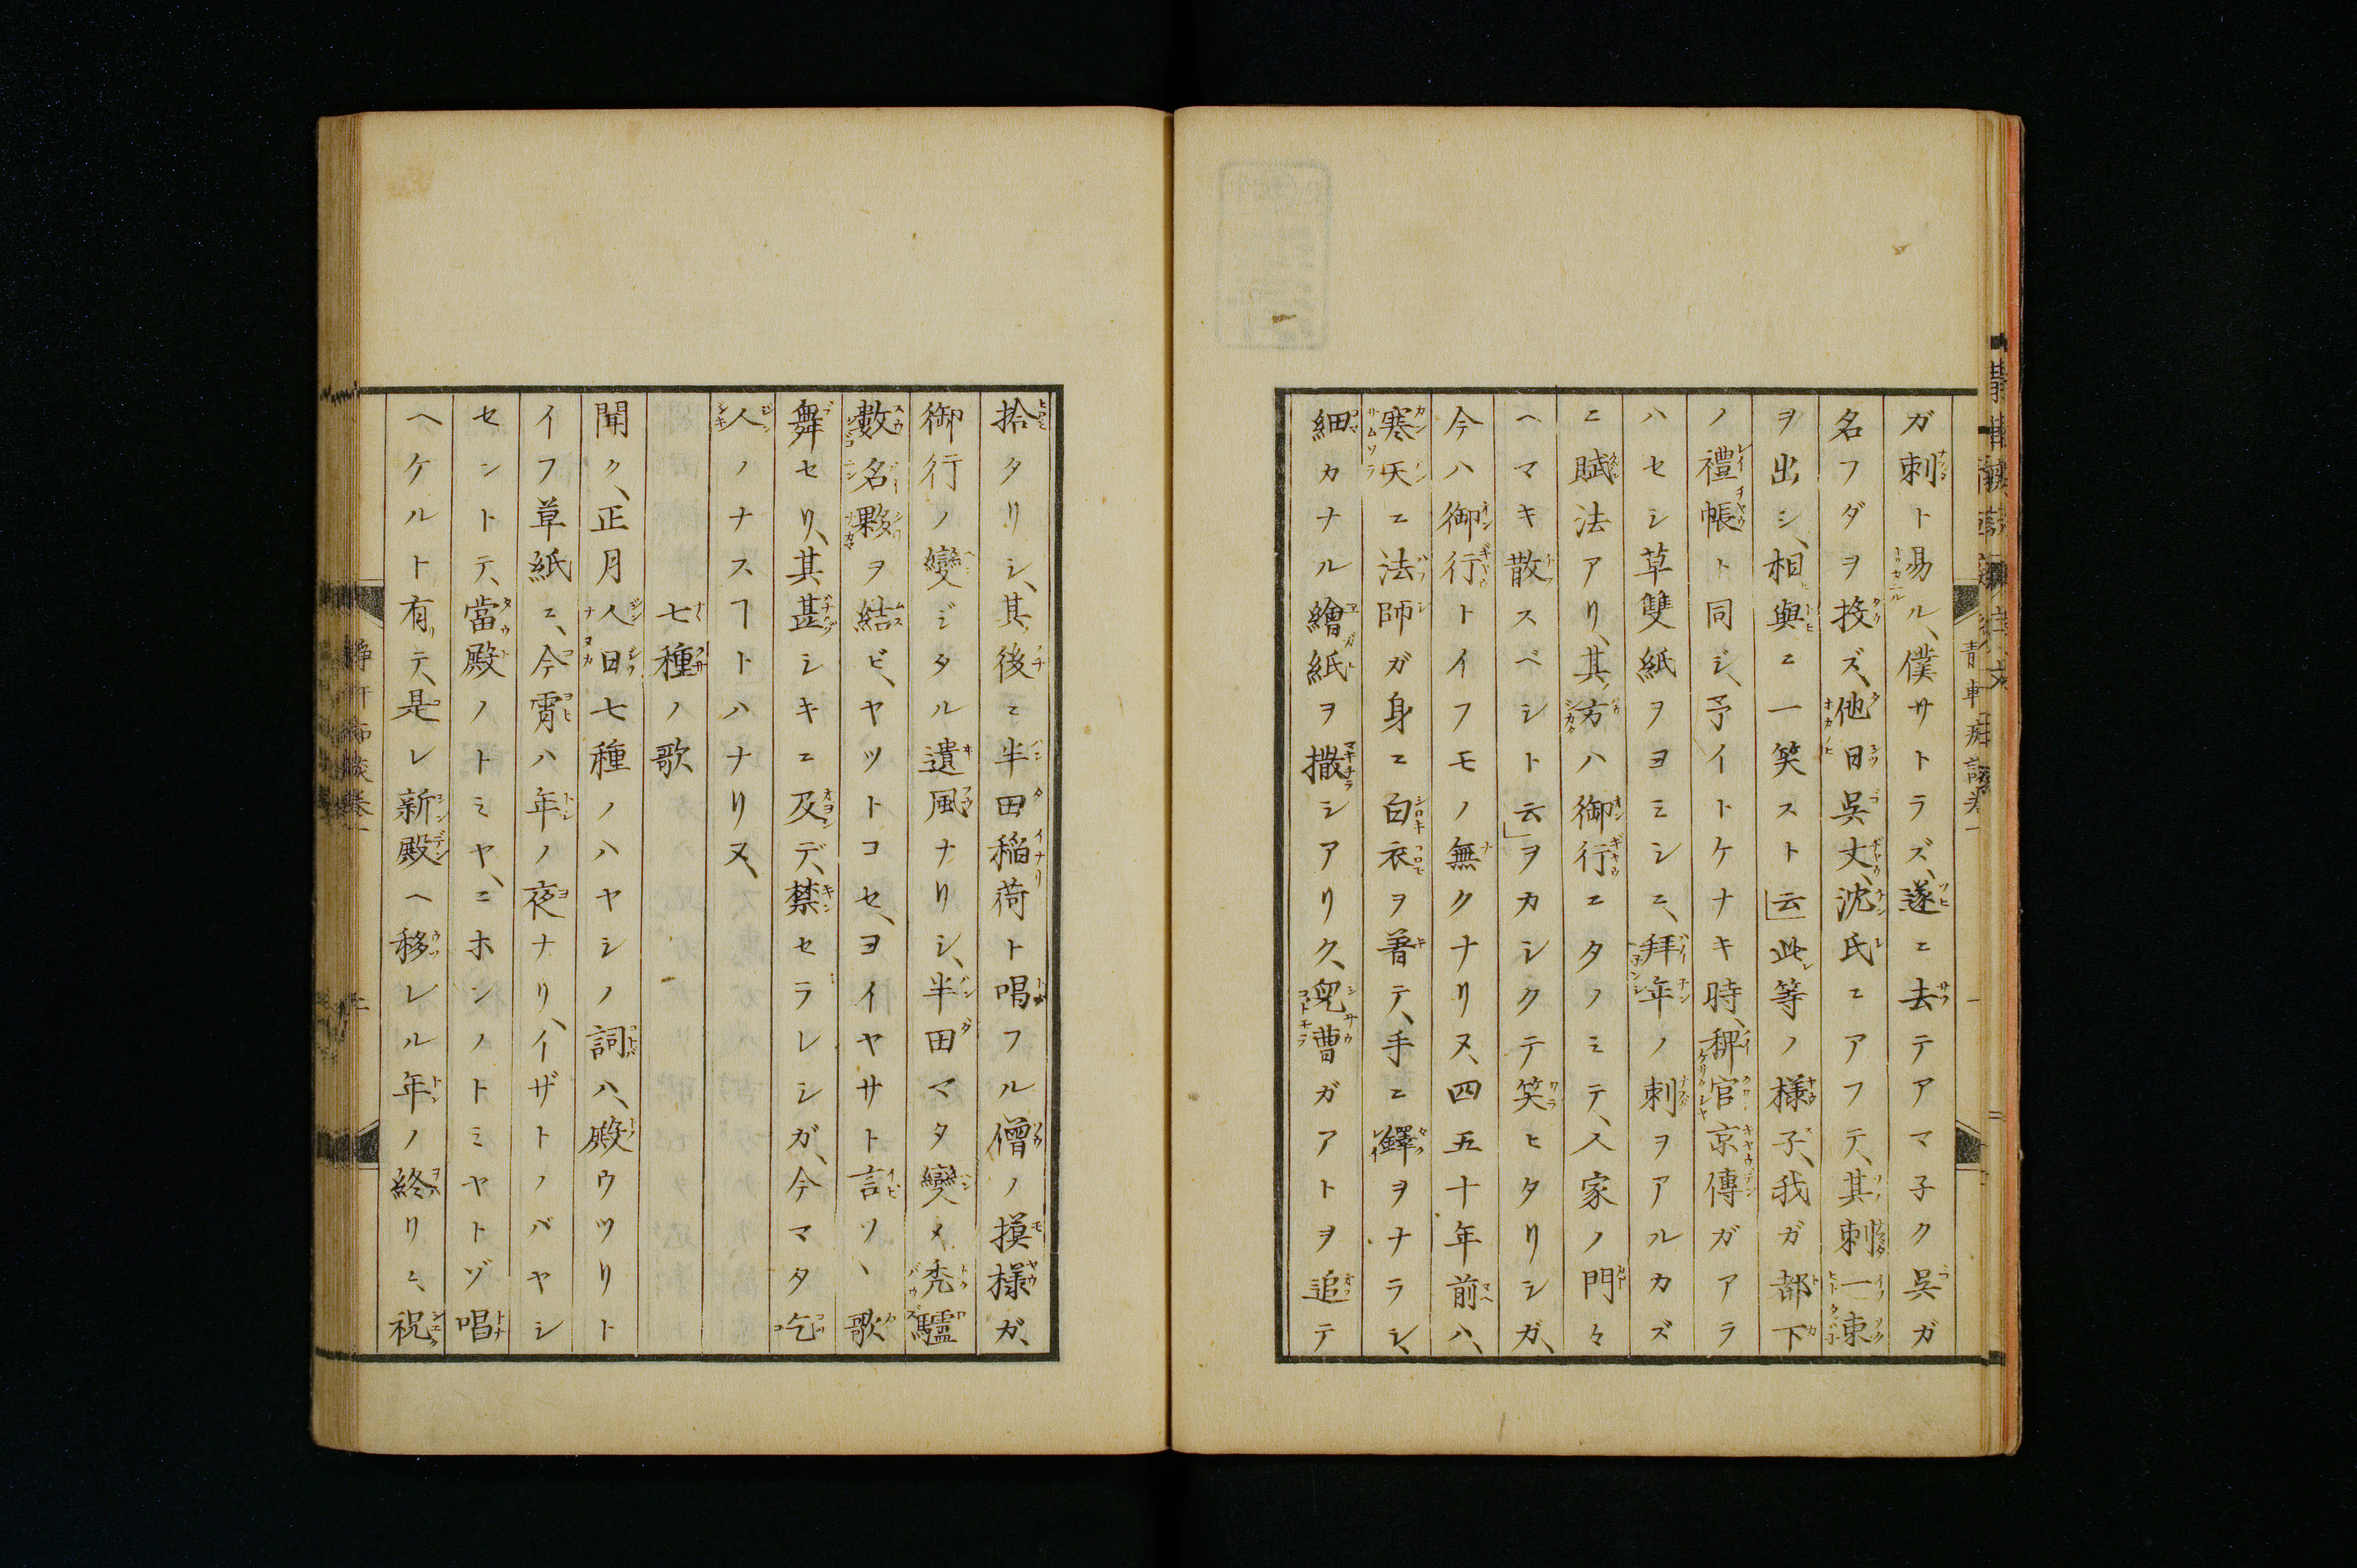 ガ刺ト易ル、僕サトラズ、遂ニ去テアマ子ク呉ガ
名フダヲ投ズ、他日呉丈、沈氏ニアフテ、其刺一束
ヲ出シ、相與ニ一笑スト云」此等ノ様子、我ガ都下
ノ禮帳ト同シ、予イトケナキ時、稗官京傳ガアラ
ハセシ草雙紙ヲヨミシニ、拜年ノ刺ヲアルカズ
ニ賦法アリ、其方ハ御行ニタノミテ、人家ノ門々
ヘマキ散スベシト云」ヲカシクテ笑ヒタリシガ、
今ハ御行トイフモノ無クナリヌ、四五十年前ハ、
寒天ニ法師ガ身ニ白衣ヲ著テ、手ニ鐸ヲナラシ、
細カナル繪紙ヲ撒シアリク、兒曹ガアトヲ追テ
拾タリシ、其後ニ半田稲荷ト唱フル僧ノ摸様ガ、
御行ノ變ジタル遺風ナリシ、半田マタ變メ禿驢
數名夥ヲ結ビ、ヤツトコセ、ヨイヤサト言ツヽ歌
舞セリ、其甚シキニ及デ、禁セラレシガ、今マタ乞
人ノナスヿトハナリヌ、
七種ノ歌
聞ク、正月人日七種ノハヤシノ詞ハ、殿ウツリト
イフ草紙ニ、今宵ハ年ノ夜ナリ、イザトノバヤシ
セントテ、當殿ノトミヤ、ニホンノトミヤトゾ唱
ヘケルト有テ、是レ新殿ヘ移レル年ノ終リニ、祝